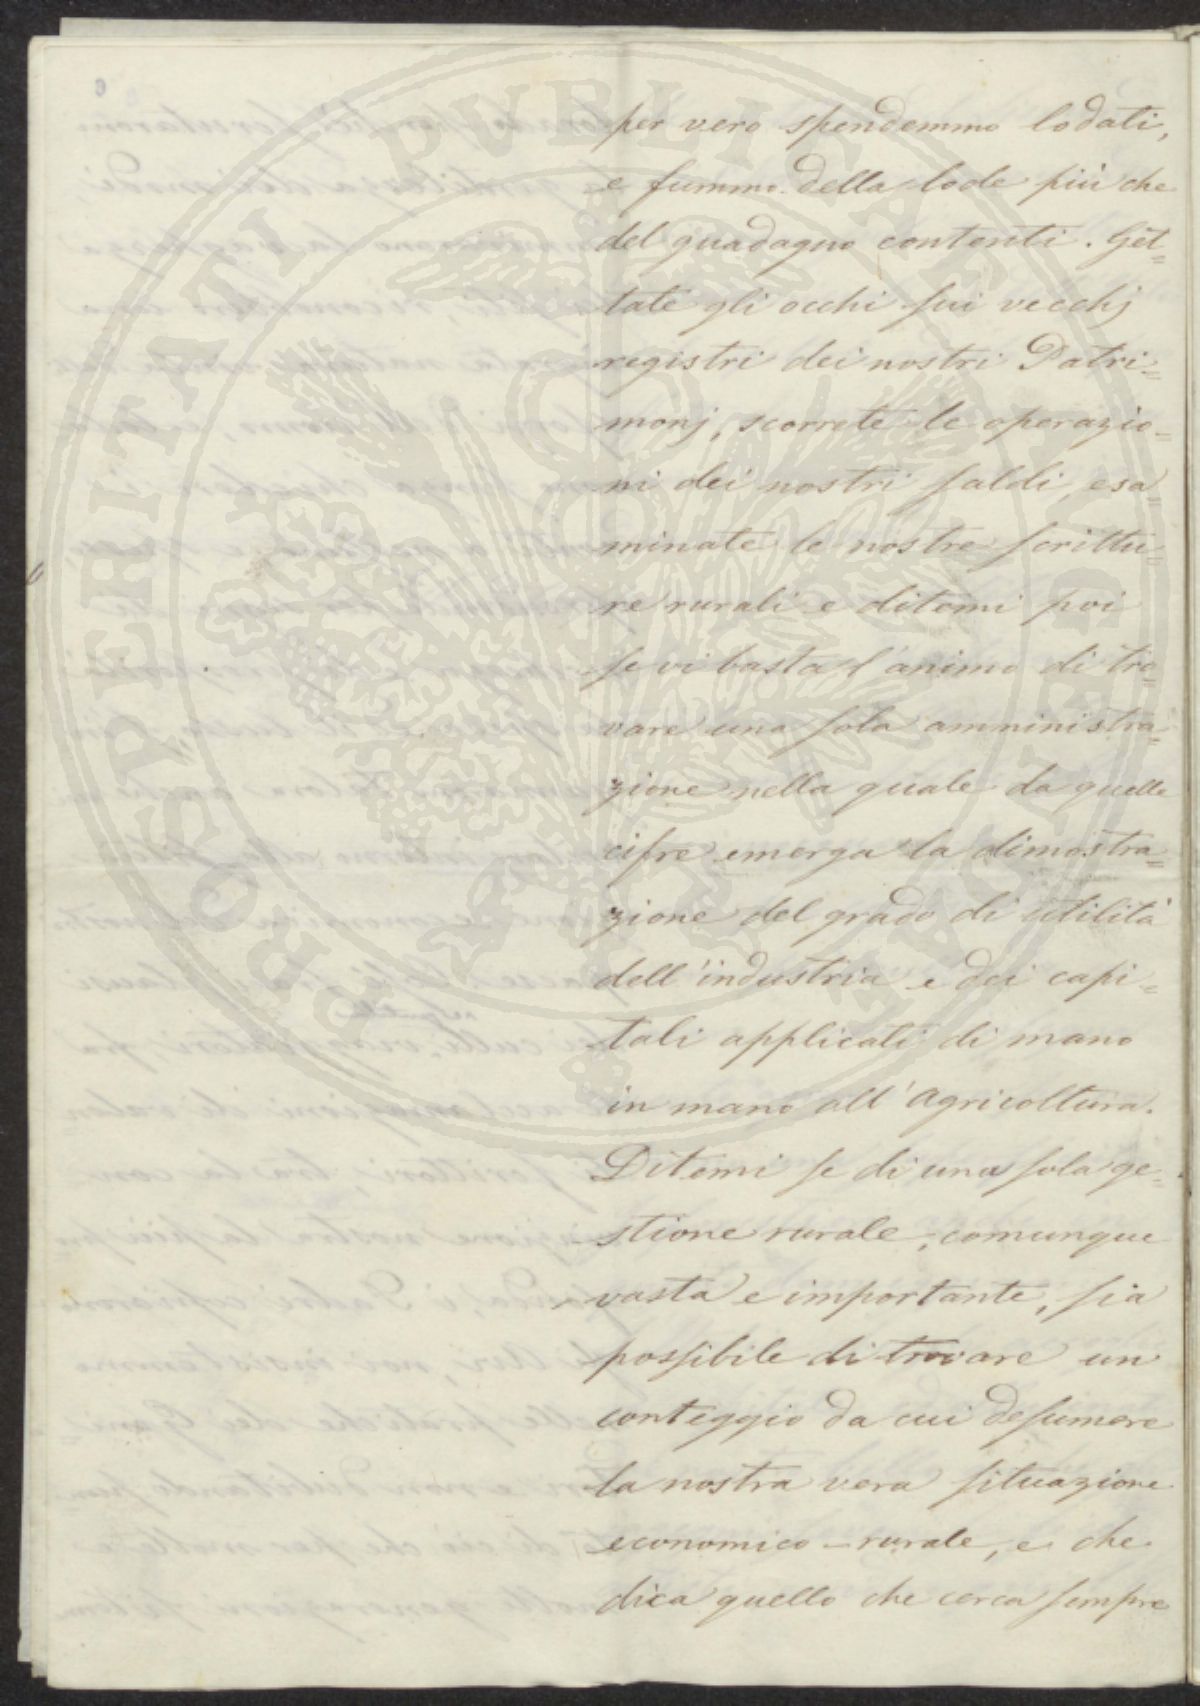 per vero spendemmo lodati,
e fummo della lode più che
del guadagno contenti. Get=
tate gli occhi sui vecchj
registri dei nostri Patri=
monj, scorrete le operazio=
ni dei nostri saldi, esa=
minate le nostre scrittu=
re rurali e ditemi poi
se vi basta l'animo di tro=
vare una sola amministra=
zione nella quale da quelle
cifre emerga la dimostra=
zione del grado di utilità
dell'industria e dei capi=
tali applicati di mano
in mano all'Agricoltura.
Ditemi se di una sola ge=
stione rurale, comunque
vasta e importante, sia
possibile di trovare un
conteggio da cui desumere
la nostra vera situazione
economico-rurale, e che
dica quello che cerca sempre
PROSPERITATI PUBLICAE AUGENDAE